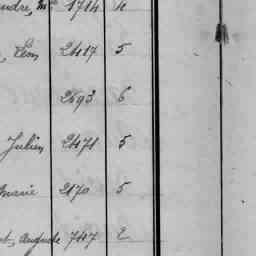 andre, Mce 1714 4
, Léon 2417 5
2693 6
Julien 2471 5
Marie 2170 5
st, Auguste 7417 2